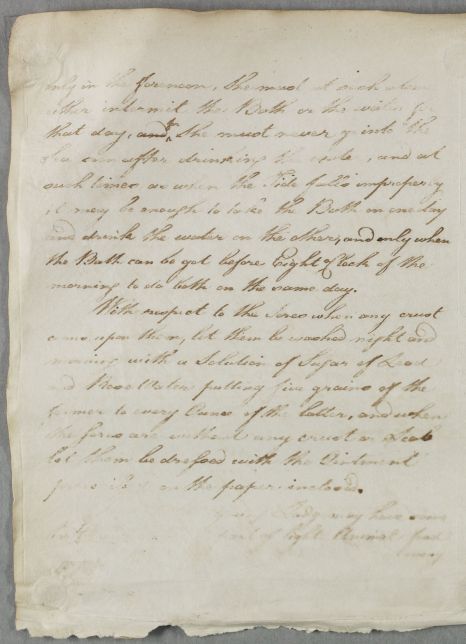 only in the forenoon, She must at such a time
either intermit the Bath or the water for
that day, and She must never go into the
Sea soon after drinking the water, and at
such times as when the Tide falls improperly
it may be enough to take the Bath on one day
and drink the water on the other, and only when
the Bath can be got before Eight o'Clock of the
morning to do both on the same day.
With respect to the Sores when any crust
comes upon them, let them be washed night and
morning with a Solution of Sugar of Lead
and Rose Water putting five grains of the
former to every Ounce of the latter, and when
the sores are without any crust or Scab
let them be dressed with the Ointment
on the paper inclosed.
Lady may have some
of light Animal food
every